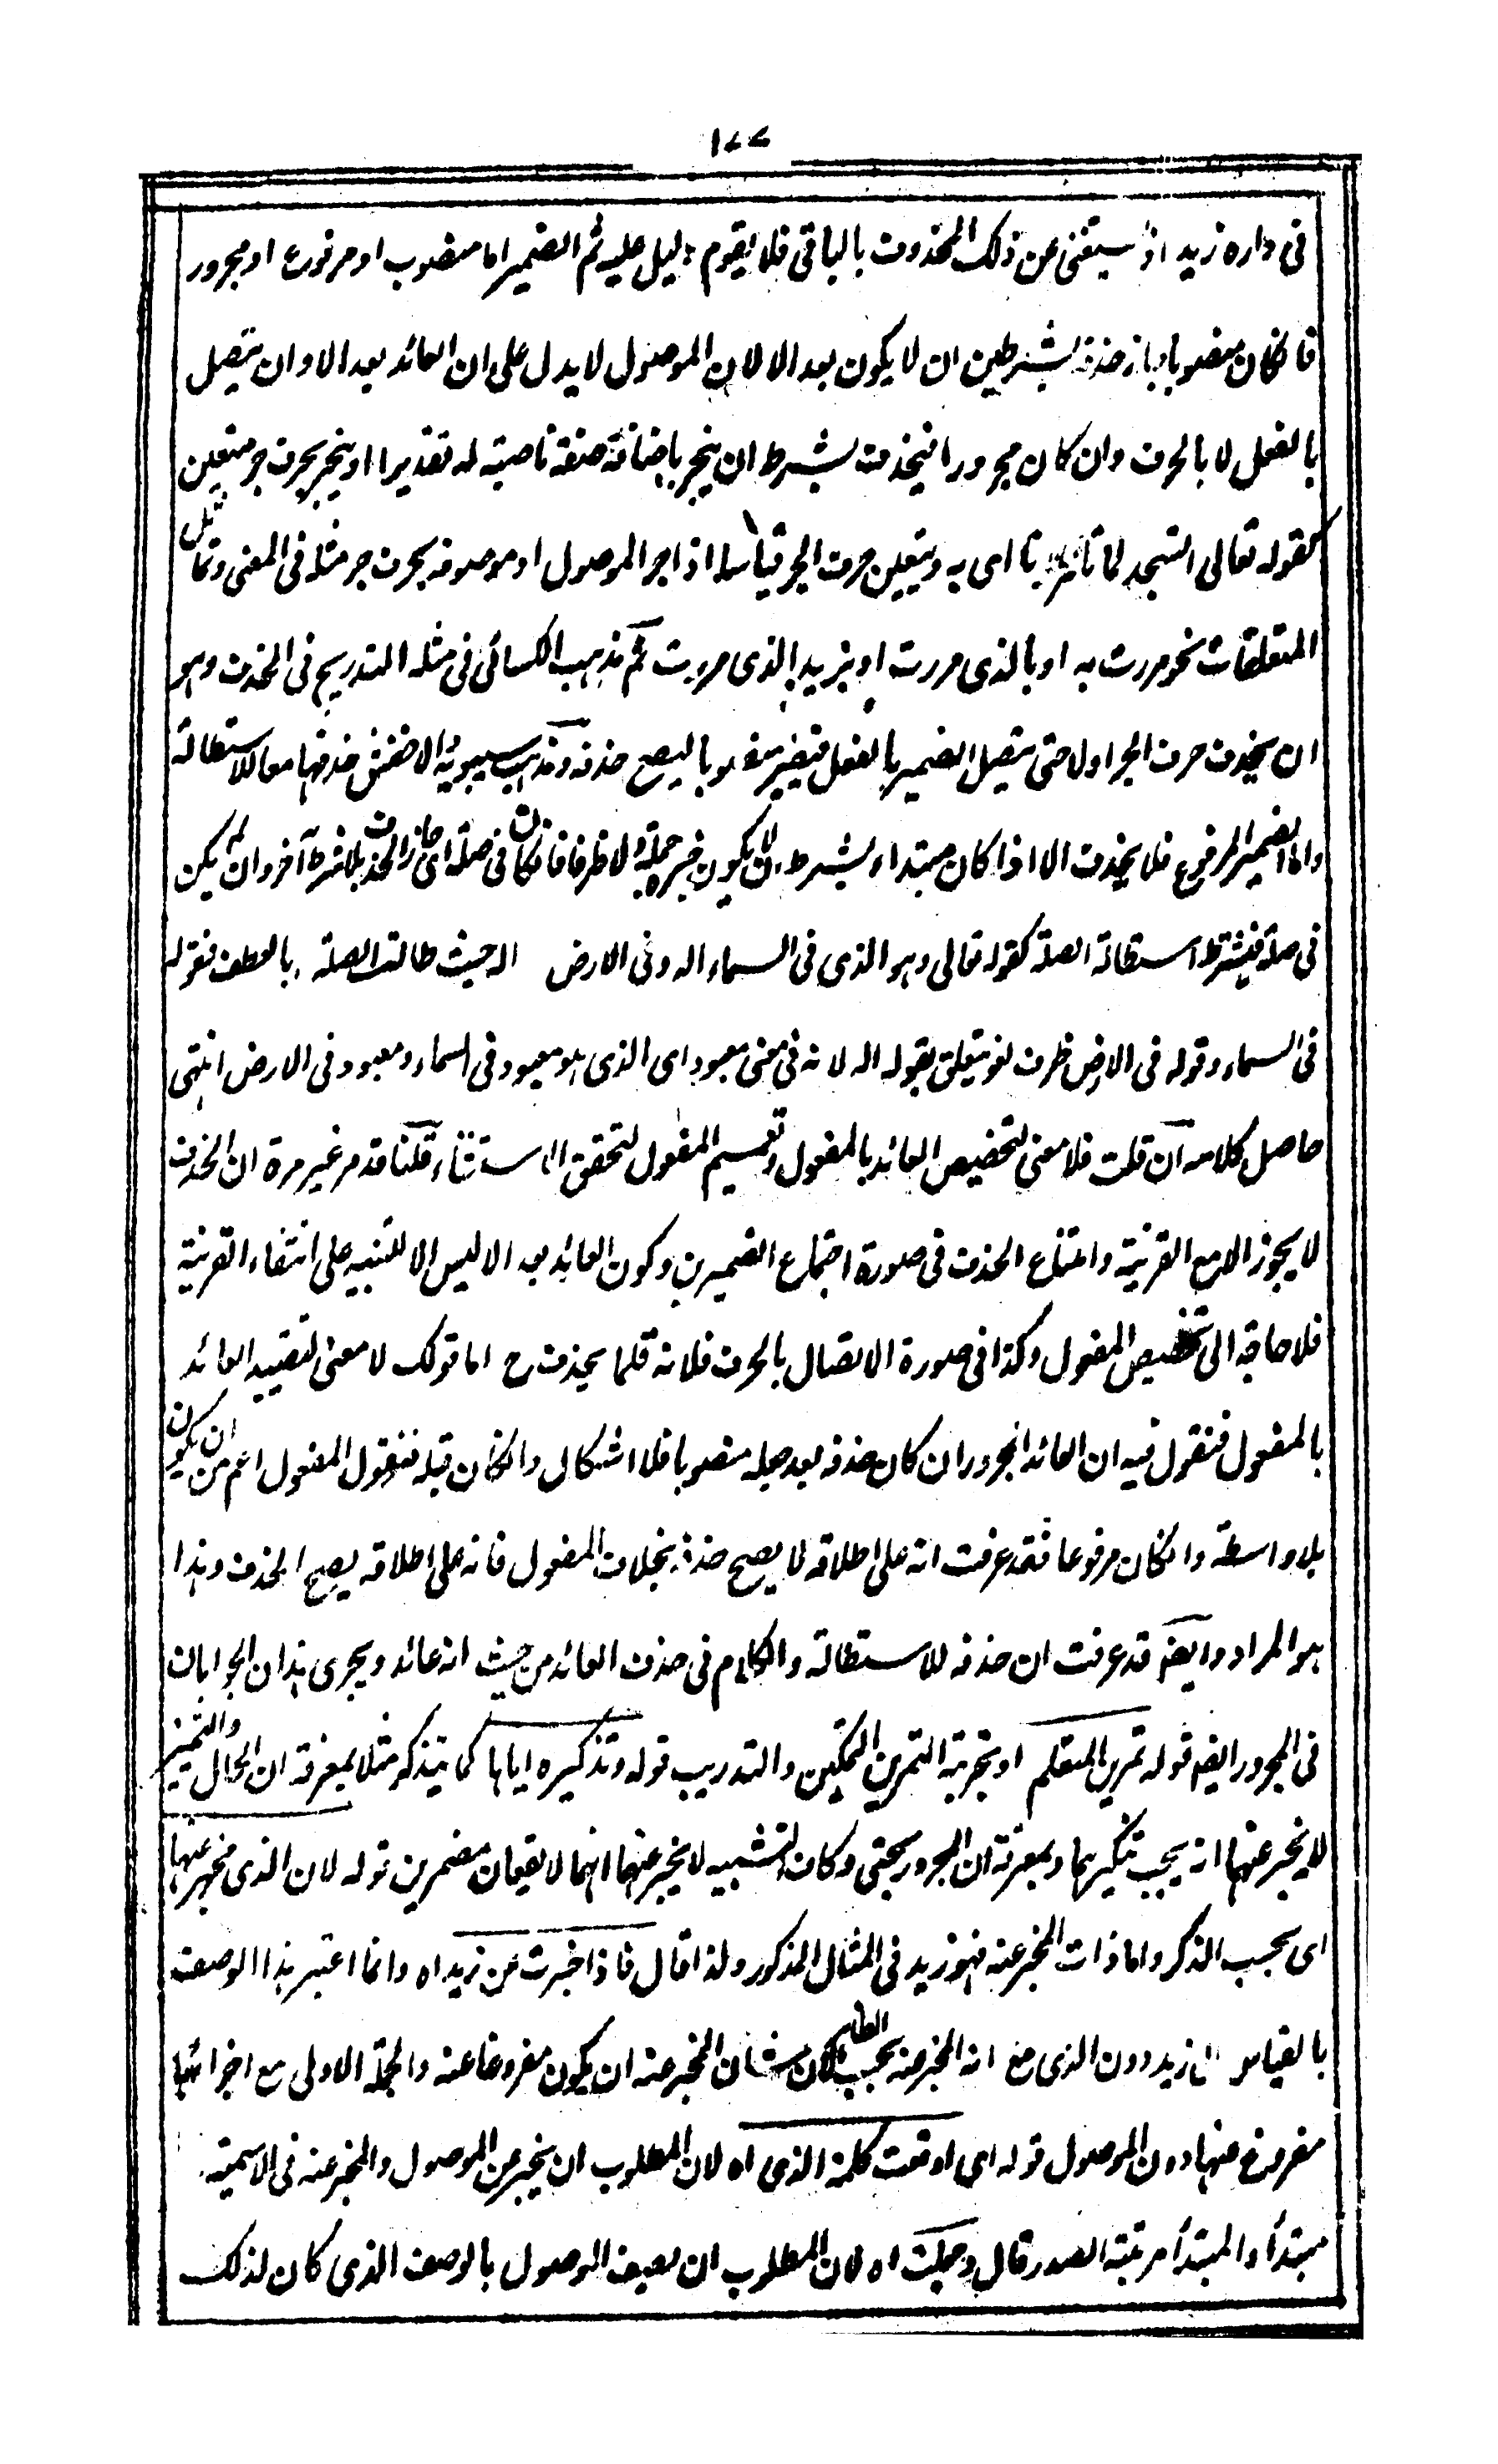 ١٧٧
فى داره زيد اذ يستغنى عن ذلك المحذوف بالباقى فلا يقوم دليل عليه ثم الضمير اما منصوب او مرفوع او مجرور
فانكان منصوبا جاز حذفه بشرطين ان لا يكون بعد الا لان الموصول لا يدل على ان العائد بعد الا وان يتصل
بالفعل لا بالحرف وان كان مجرورا فيحذف بشرط ان ينجر باضافة صفة ناصبة له تقديرا او ينجر بحرف جر متعين
كقوله تعالى انسجد لما تأمرنا اى به ويتعين حرف الجر قياسا اذا جر الموصول او موصوفه بحرف جر مثله فى المعنى وتماثل
المتعلقات نحو مررت به او بالذى مررت او بزيد الذى مررت ثم مذهب الكسائى فى مثله التدريج فى الحذف وهو
ان يحذف حرف الجر اولا حتى يتصل الضمير بالفعل فيصير منصوبا ليصح حذفه ومذهب سيبويه والاخفش حذفهما معا للاستطالة
واما الضمير المرفوع فلا يحذف الا اذا كان مبتداء بشرط ان لا يكون خبره جملة ولا ظرفا فانكان فى صلة اى جاز الحذف بلا شرط آخر وان لم يكن
فى صلة فيشترط استطالة الصلة كقوله تعالى وهو الذى فى السماء اله وفى الارض اله حيث طالت الصلة بالعطف فقوله
فى السماء وقوله فى الارض ظرف لغو يتعلق بقوله اله لانه فى معنى معبود اى الذى هو معبود فى السماء ومعبود فى الارض انتهى
حاصل كلامه ان قلت فلا معنى لتخصيص العائد بالمفعول وتعميم المفعول لتحقق الاستثناء قلنا قد مر غير مرة ان الحذف
لا يجوز الا مع القرينة وامتناع الحذف فى صورة اجتماع الضميرين وكون العائد بعد الا ليس الا للتنبيه على انتفاء القرينة
فلا حاجة الى تخصيص المفعول وكذا فى صورة الاتصال بالحرف فلانه قلما يحذف ح اما قولك لا معنى لتقييد العائد
بالمفعول فنقول فيه ان العائد المجرور ان كان حذفه بعد جعله منصوبا فلا اشكال وانكان قبله فنقول المفعول اعم من ان يكون
بلا واسطة وانكان مرفوعا فقد عرفت انه على اطلاقه لا يصح حذفه بخلاف المفعول فانه على اطلاقه يصح الحذف وهذا
هو المراد وايضا قد عرفت ان حذفه للاستطالة والكلام فى حذف العائد من حيث انه عائد ويجرى هذان الجوابان
فى المجرور ايضا قوله تمرين المتعلم او تجربة التمرين التمكين والتدريب قوله وتذكيره اياها كما يتذكر مثلا بمعرفة ان الحال والتميز
لا يخبر عنهما انه يجب تنكيرهما وبمعرفة ان المجرور بحتى وكاف التشبيه لا يخبر عنهما انهما لا يقعان مضمرين قوله لان الذى مخبر عنها
اى بحسب الذكر واما ذات المخبر عنه فهو زيد فى المثال المذكور ولذا قال فاذا اخبرت عن زيد اه وانما اعتبر هذا الوصف
بالقياس الى زيد دون الذى مع انه المخبر عنه بحسب الظاهر لان من شان المخبر عنه ان يكون مفروغا عنه والجملة الاولى مع اجزائها
مفروغ عنها دون الموصول قوله اى اوقعت كلمة الذى اه لان المطلوب ان يخبر عن الموصول والمخبر عنه فى الاسمية
مبتدأ والمبتدأ مرتبته الصدر قال وجعلت اه لان المطلوب ان يصف الموصول بالوصف الذى كان لذلك